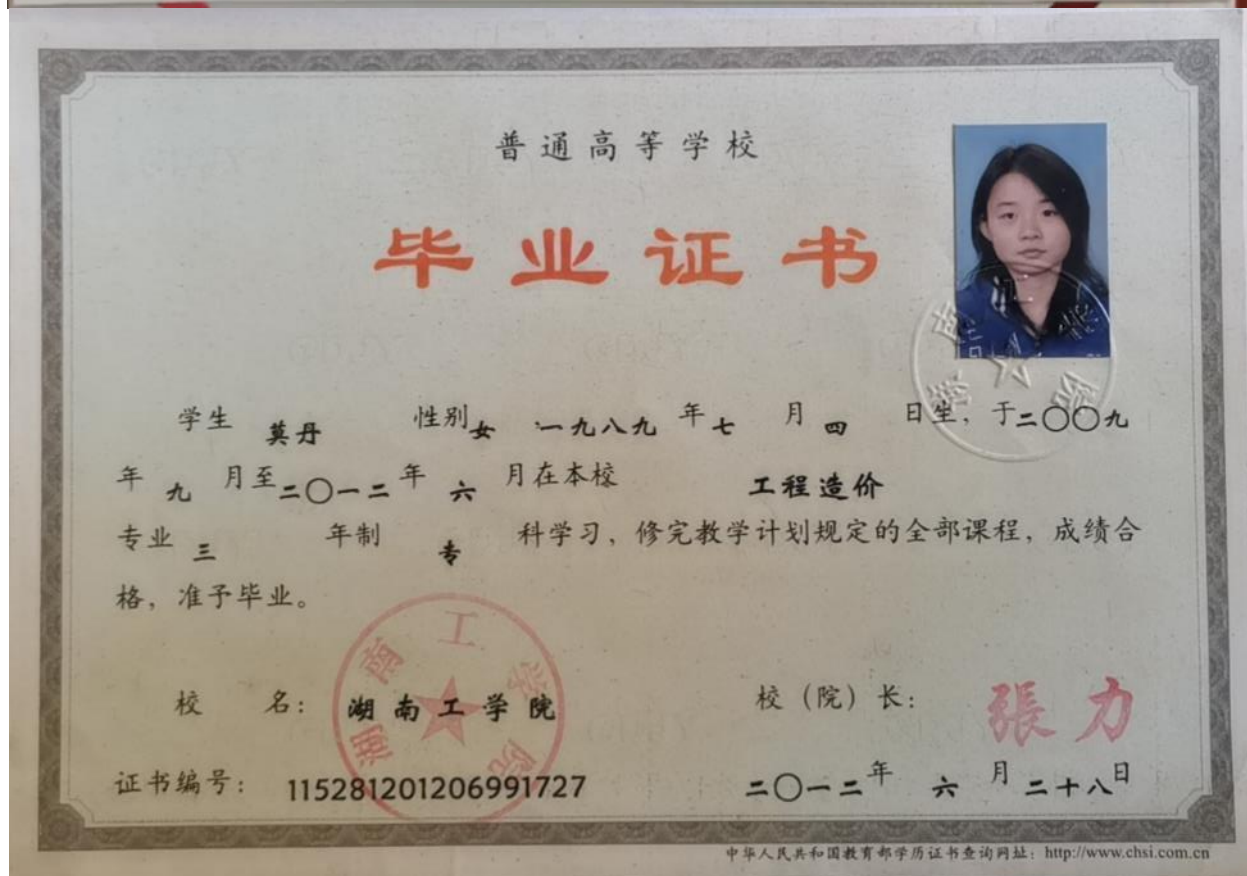 普通高等学校
毕业证书
学生 莫丹 性别女,一九八九年七月四日生,于二〇〇九
年九月至二〇一二年六月在本校 工程造价
专业 三 年制 专 科学习,修完教学计划规定的全部课程,成绩合
格,准予毕业。
校 名: 湖南工学院 校(院)长: 張力
证书编号: 115281201206991727 二〇一二年六月二十八日
中华人民共和国教育部学历证书查询网址: http://www.chsi.com.cn
湖南工学院
湖南工学院